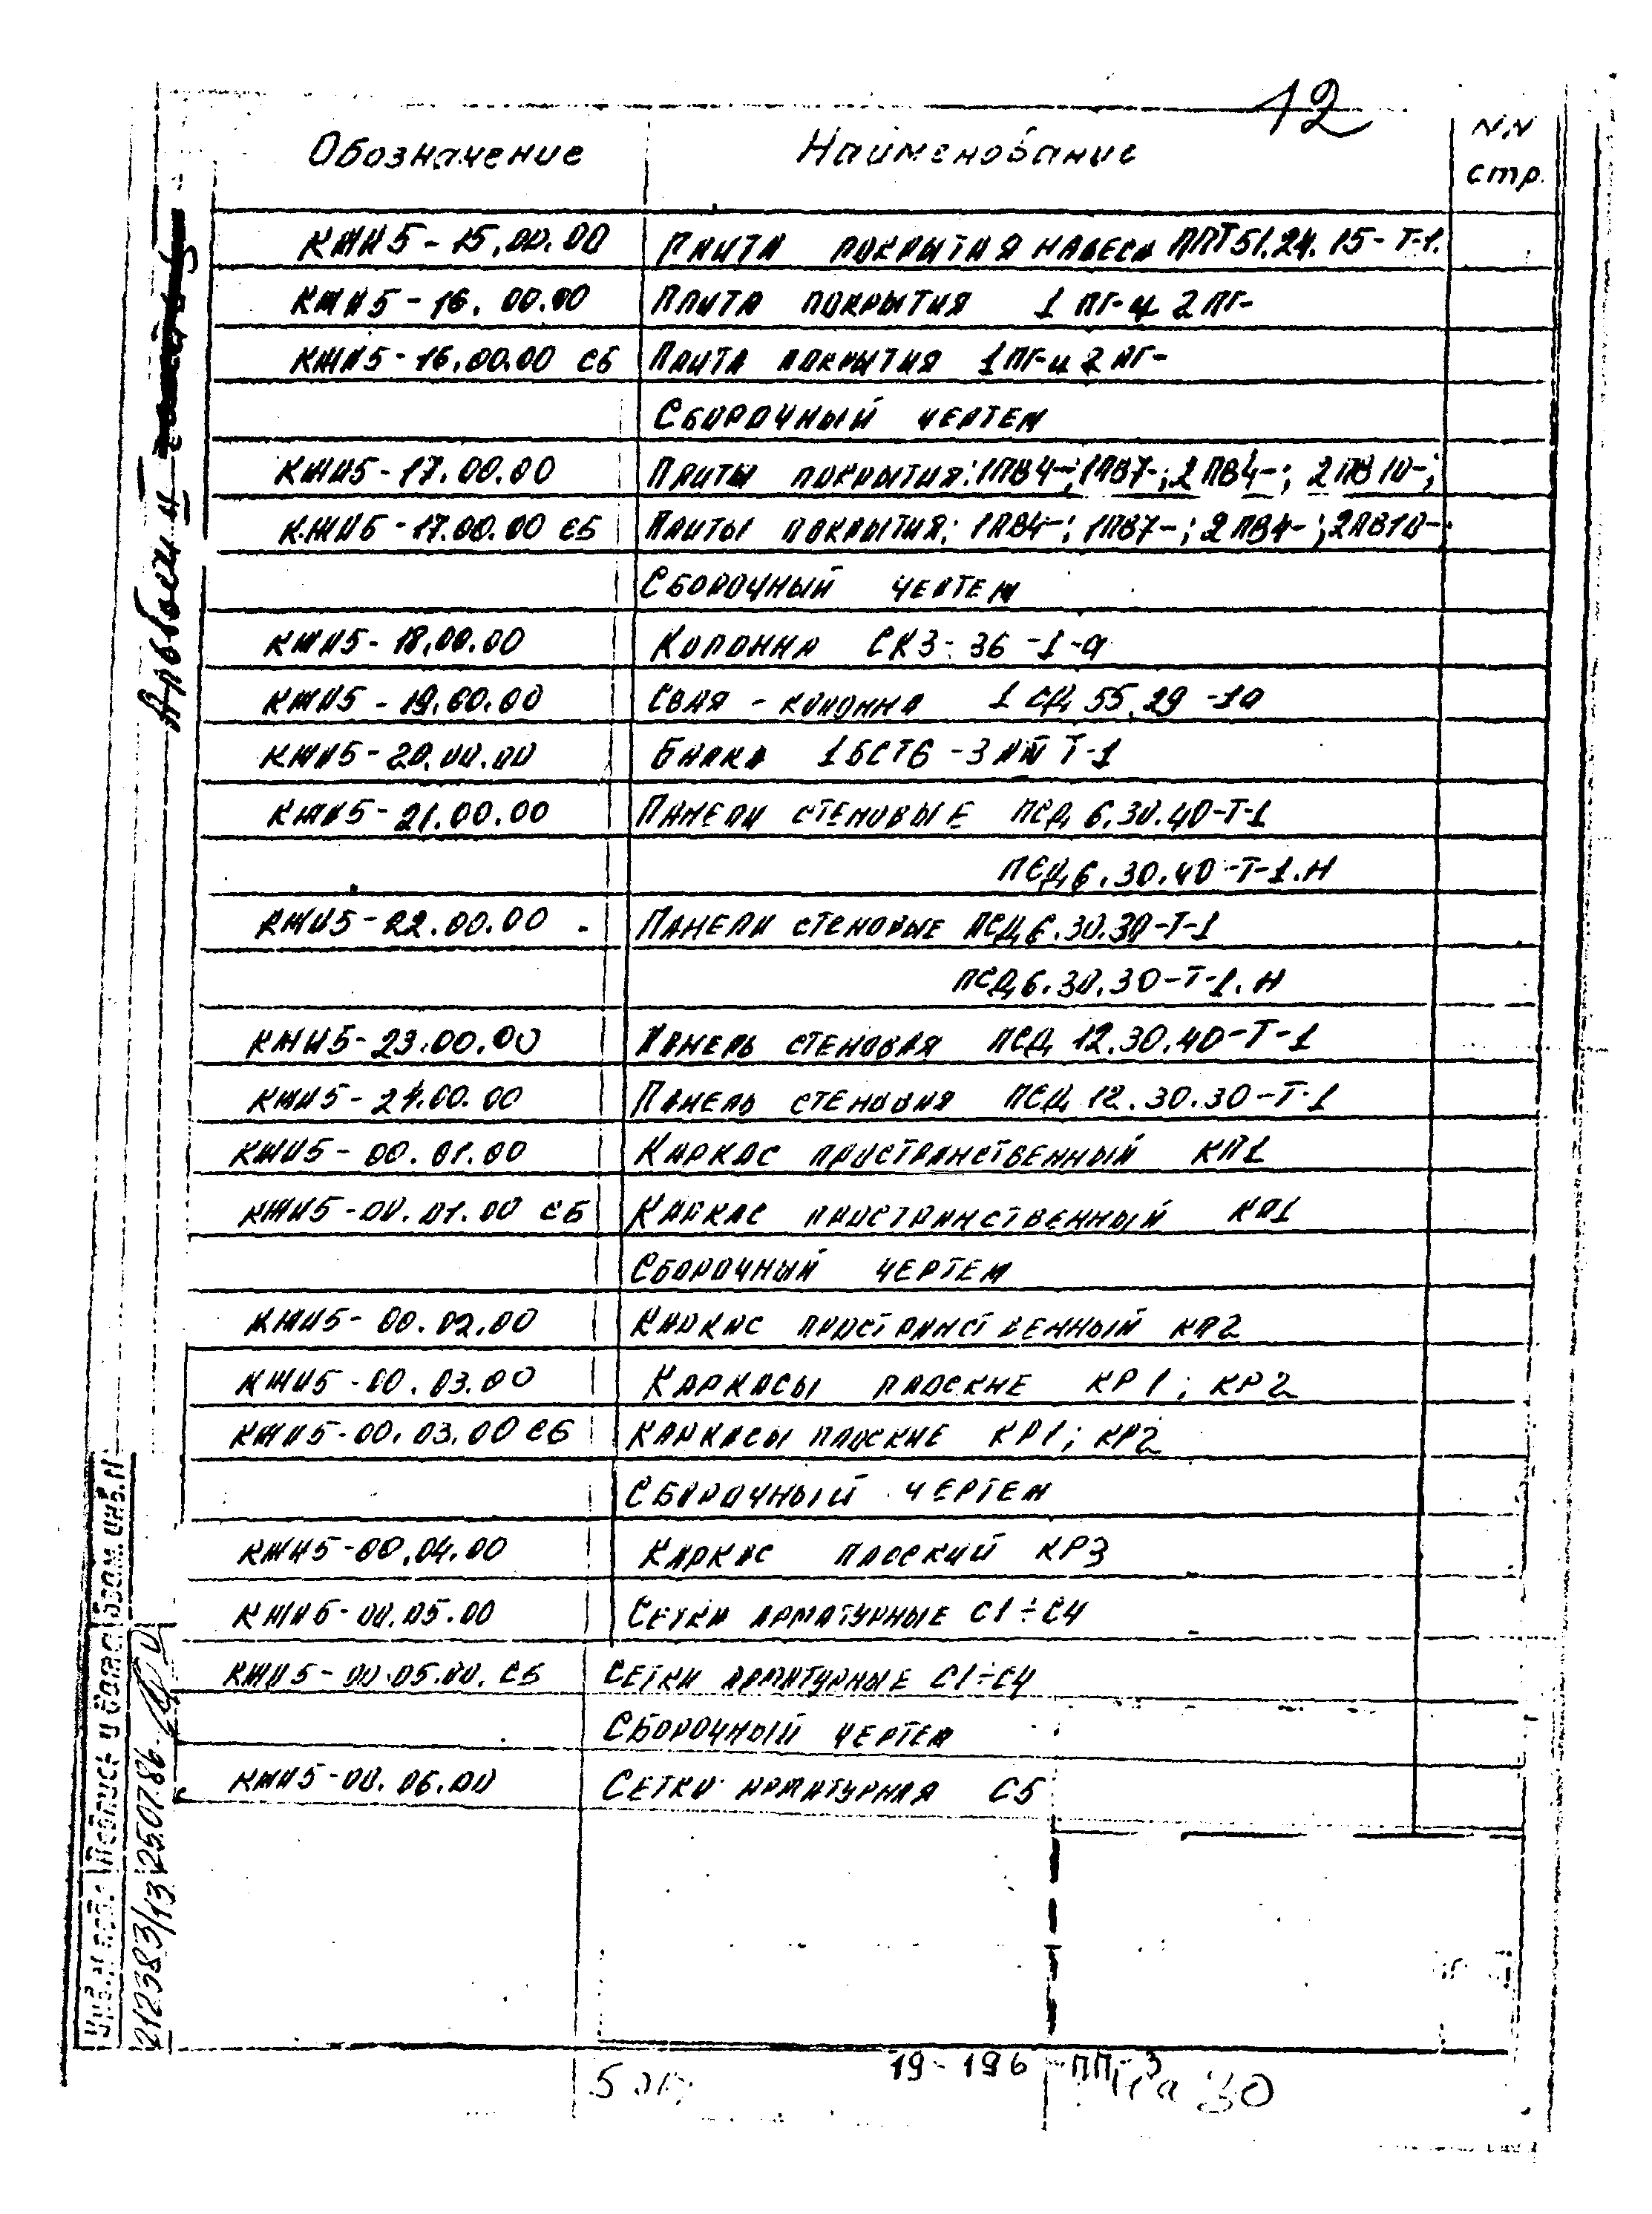 12
Обозначение Наименование NN стр.
КЖИ5-15.00.00 Плита покрытия навеса ППТ51.24.15-Т-1.
КЖИ5-16.00.00 Плита покрытия 1ПГ- и 2ПГ-
КЖИ5-16.00.00 СБ Плита покрытия 1ПГ- и 2ПГ-
Сборочный чертеж
КЖИ5-17.00.00 Плиты покрытия: 1ПВ4-; 1ПВ7-; 2ПВ4-; 2ПВ10-;
КЖИ5-17.00.00 СБ Плиты покрытия: 1ПВ4-; 1ПВ7-; 2ПВ4-; 2ПВ10-
Сборочный чертеж
КЖИ5-18.00.00 Колонна СК3-36-1-а
КЖИ5-19.00.00 Свая-колонна 1СД 55.29-1а
КЖИ5-20.00.00 Балка 1БСТ6-3 Т-1
КЖИ5-21.00.00 Панели стеновые ПСД 6.30.40-Т-1
ПСД 6.30.40-Т-1.Н
КЖИ5-22.00.00 Панели стеновые ПСД 6.30.30-Т-1
ПСД 6.30.30-Т-1.Н
КЖИ5-23.00.00 Панель стеновая ПСД 12.30.40-Т-1
КЖИ5-24.00.00 Панель стеновая ПСД 12.30.30-Т-1
КЖИ5-00.01.00 Каркас пространственный КП1
КЖИ5-00.01.00 СБ Каркас пространственный КП1
Сборочный чертеж
КЖИ5-00.02.00 Каркас пространственный КП2
КЖИ5-00.03.00 Каркасы плоские КР1; КР2
КЖИ5-00.03.00 СБ Каркасы плоские КР1; КР2
Сборочный чертеж
КЖИ5-00.04.00 Каркас плоский КР3
КЖИ5-00.05.00 Сетки арматурные С1÷С4
КЖИ5-00.05.00. СБ Сетки арматурные С1÷С4
Сборочный чертеж
КЖИ5-00.06.00 Сетка арматурная С5
Альбом II
Инв. N подл. Подпись и дата Взам. инв. N
212383/13 25.07.86
19-196 ПП-3
30